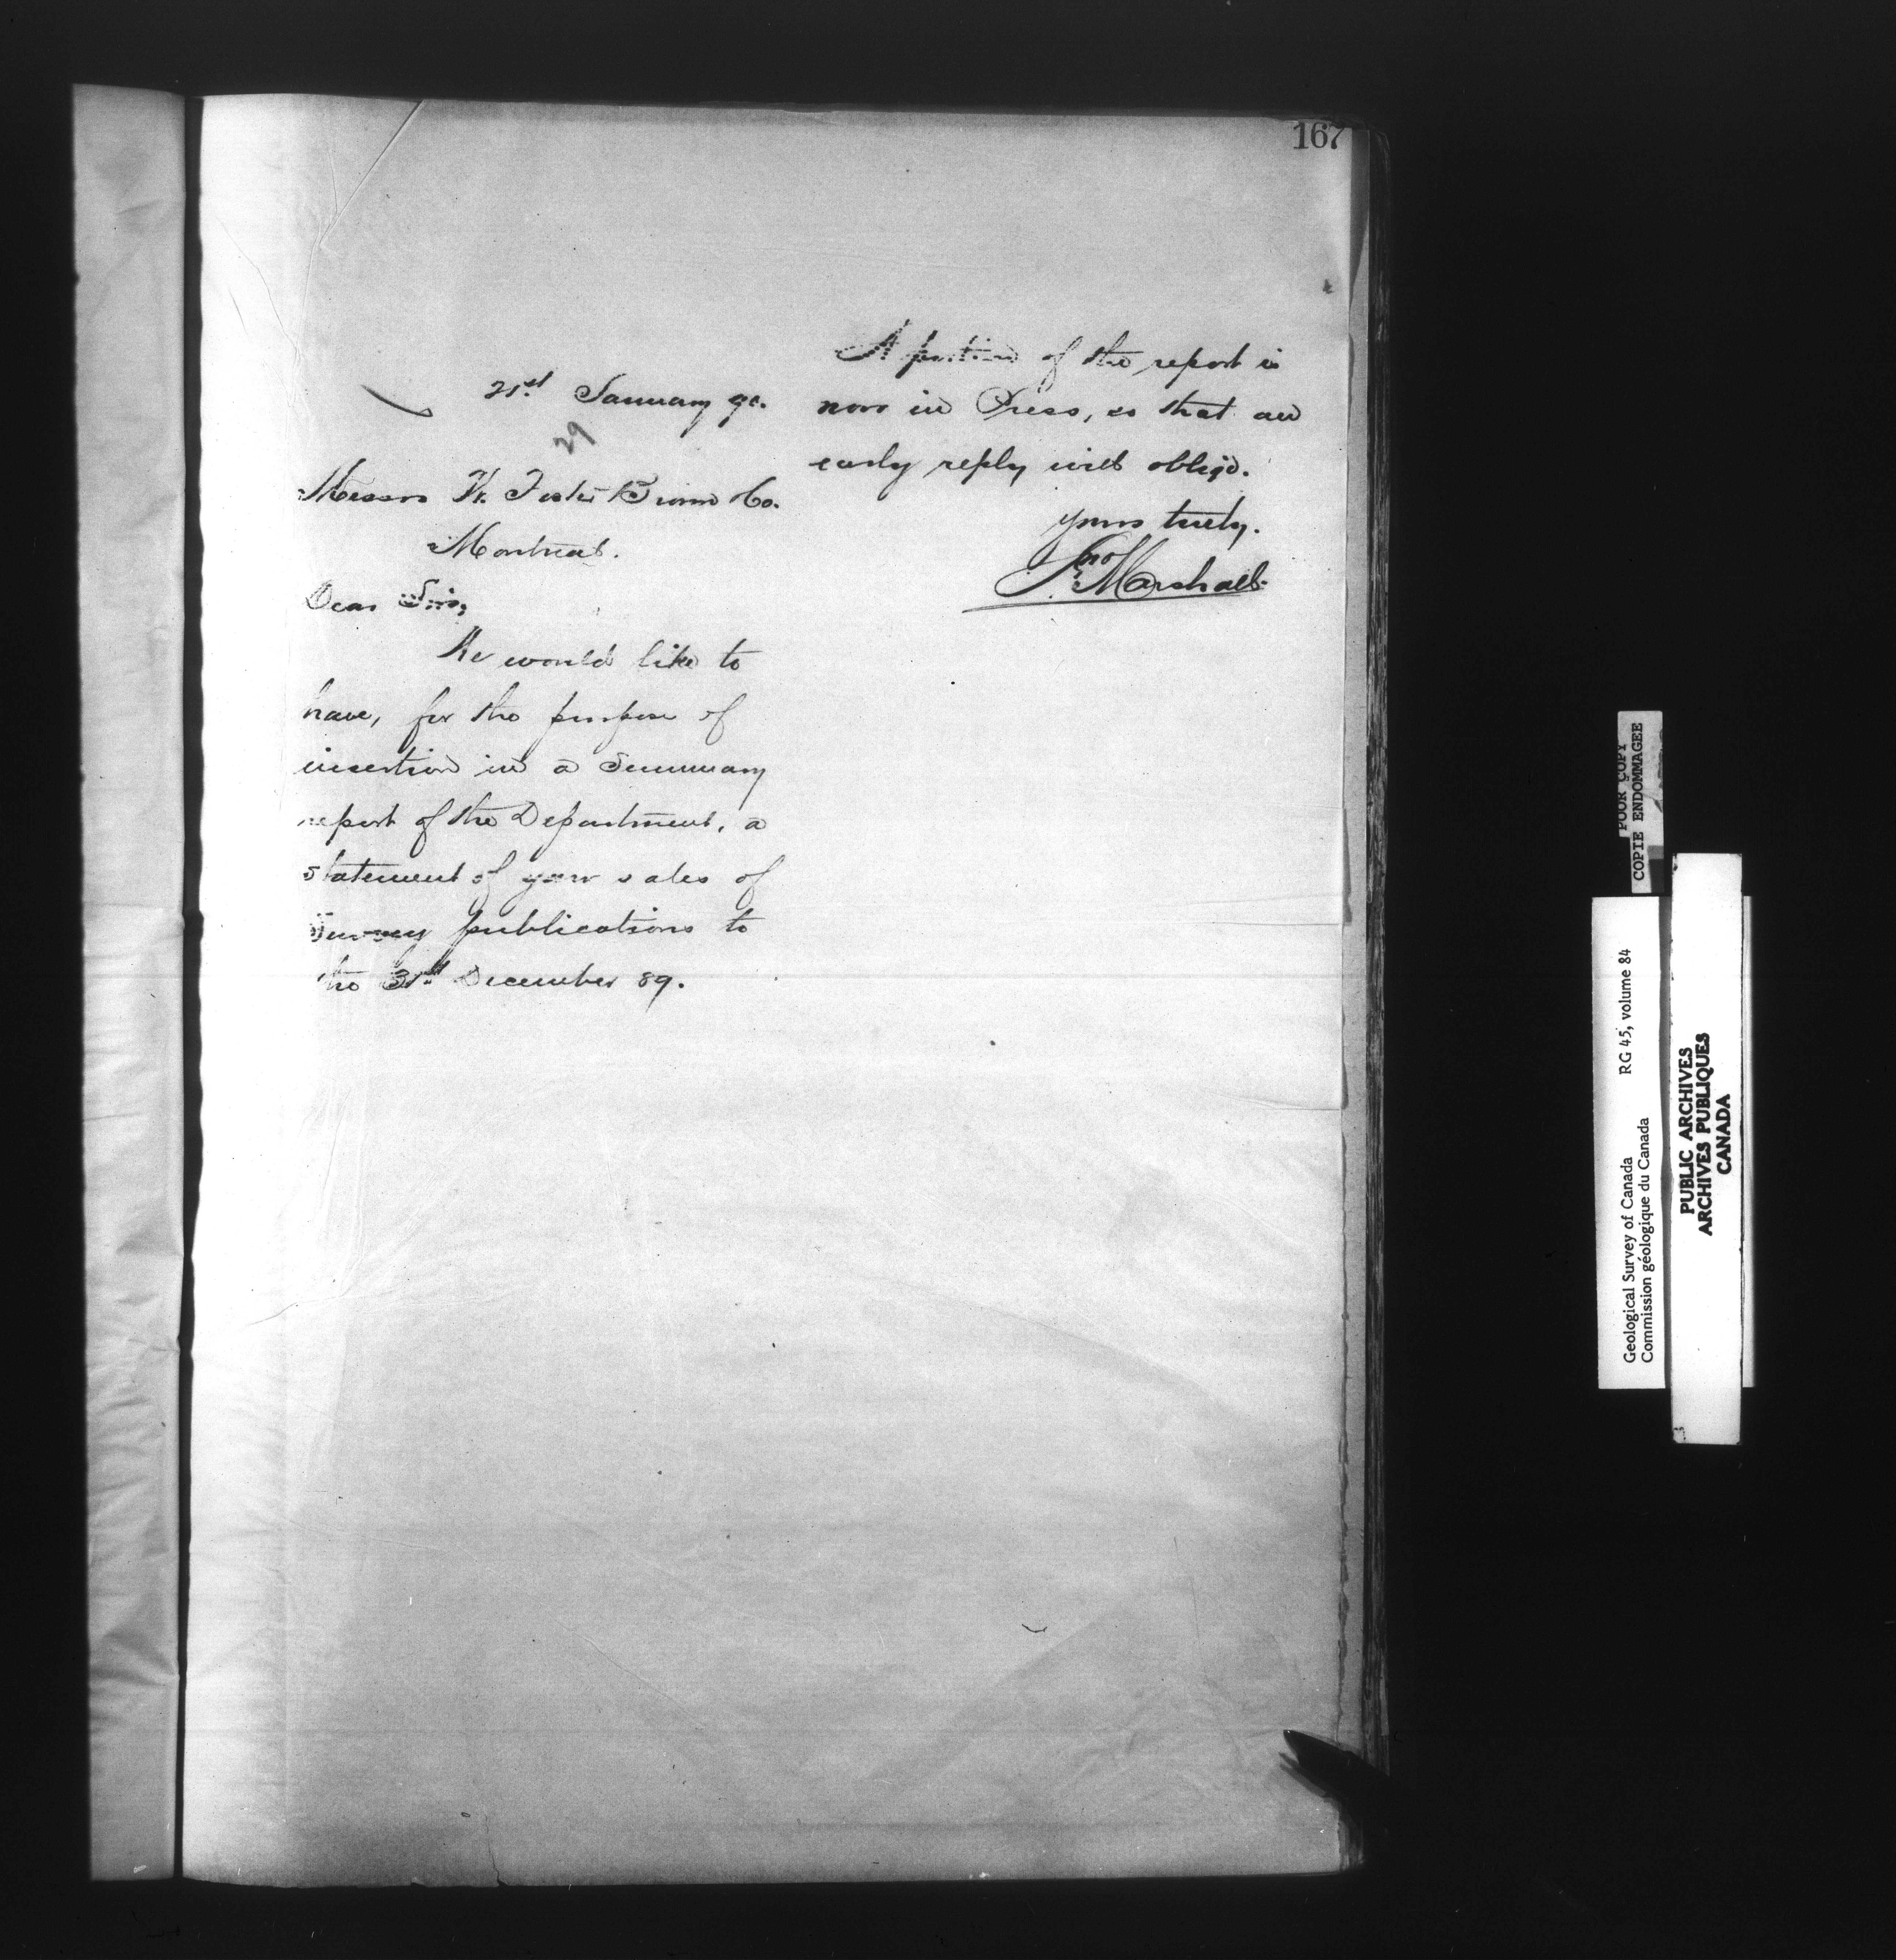 167
21st January 90.
29
Messrs W. Foster Brown & Co.
Montreal.
Dear Sirs,
We would like to
have, for the purpose of
insertion in a Summary
report of the Department, a
statement of your sales of
Survey publications to
the 31st December 89.
A portion of the report is
now in Press, so that an
early reply will oblige.
Yours truly.
Jno Marshall
POOR COPY
COPIE ENDOMMAGEE
Geological Survey of Canada RG 45, volume 84
Commission géologique du Canada
PUBLIC ARCHIVES
ARCHIVES PUBLIQUES
CANADA